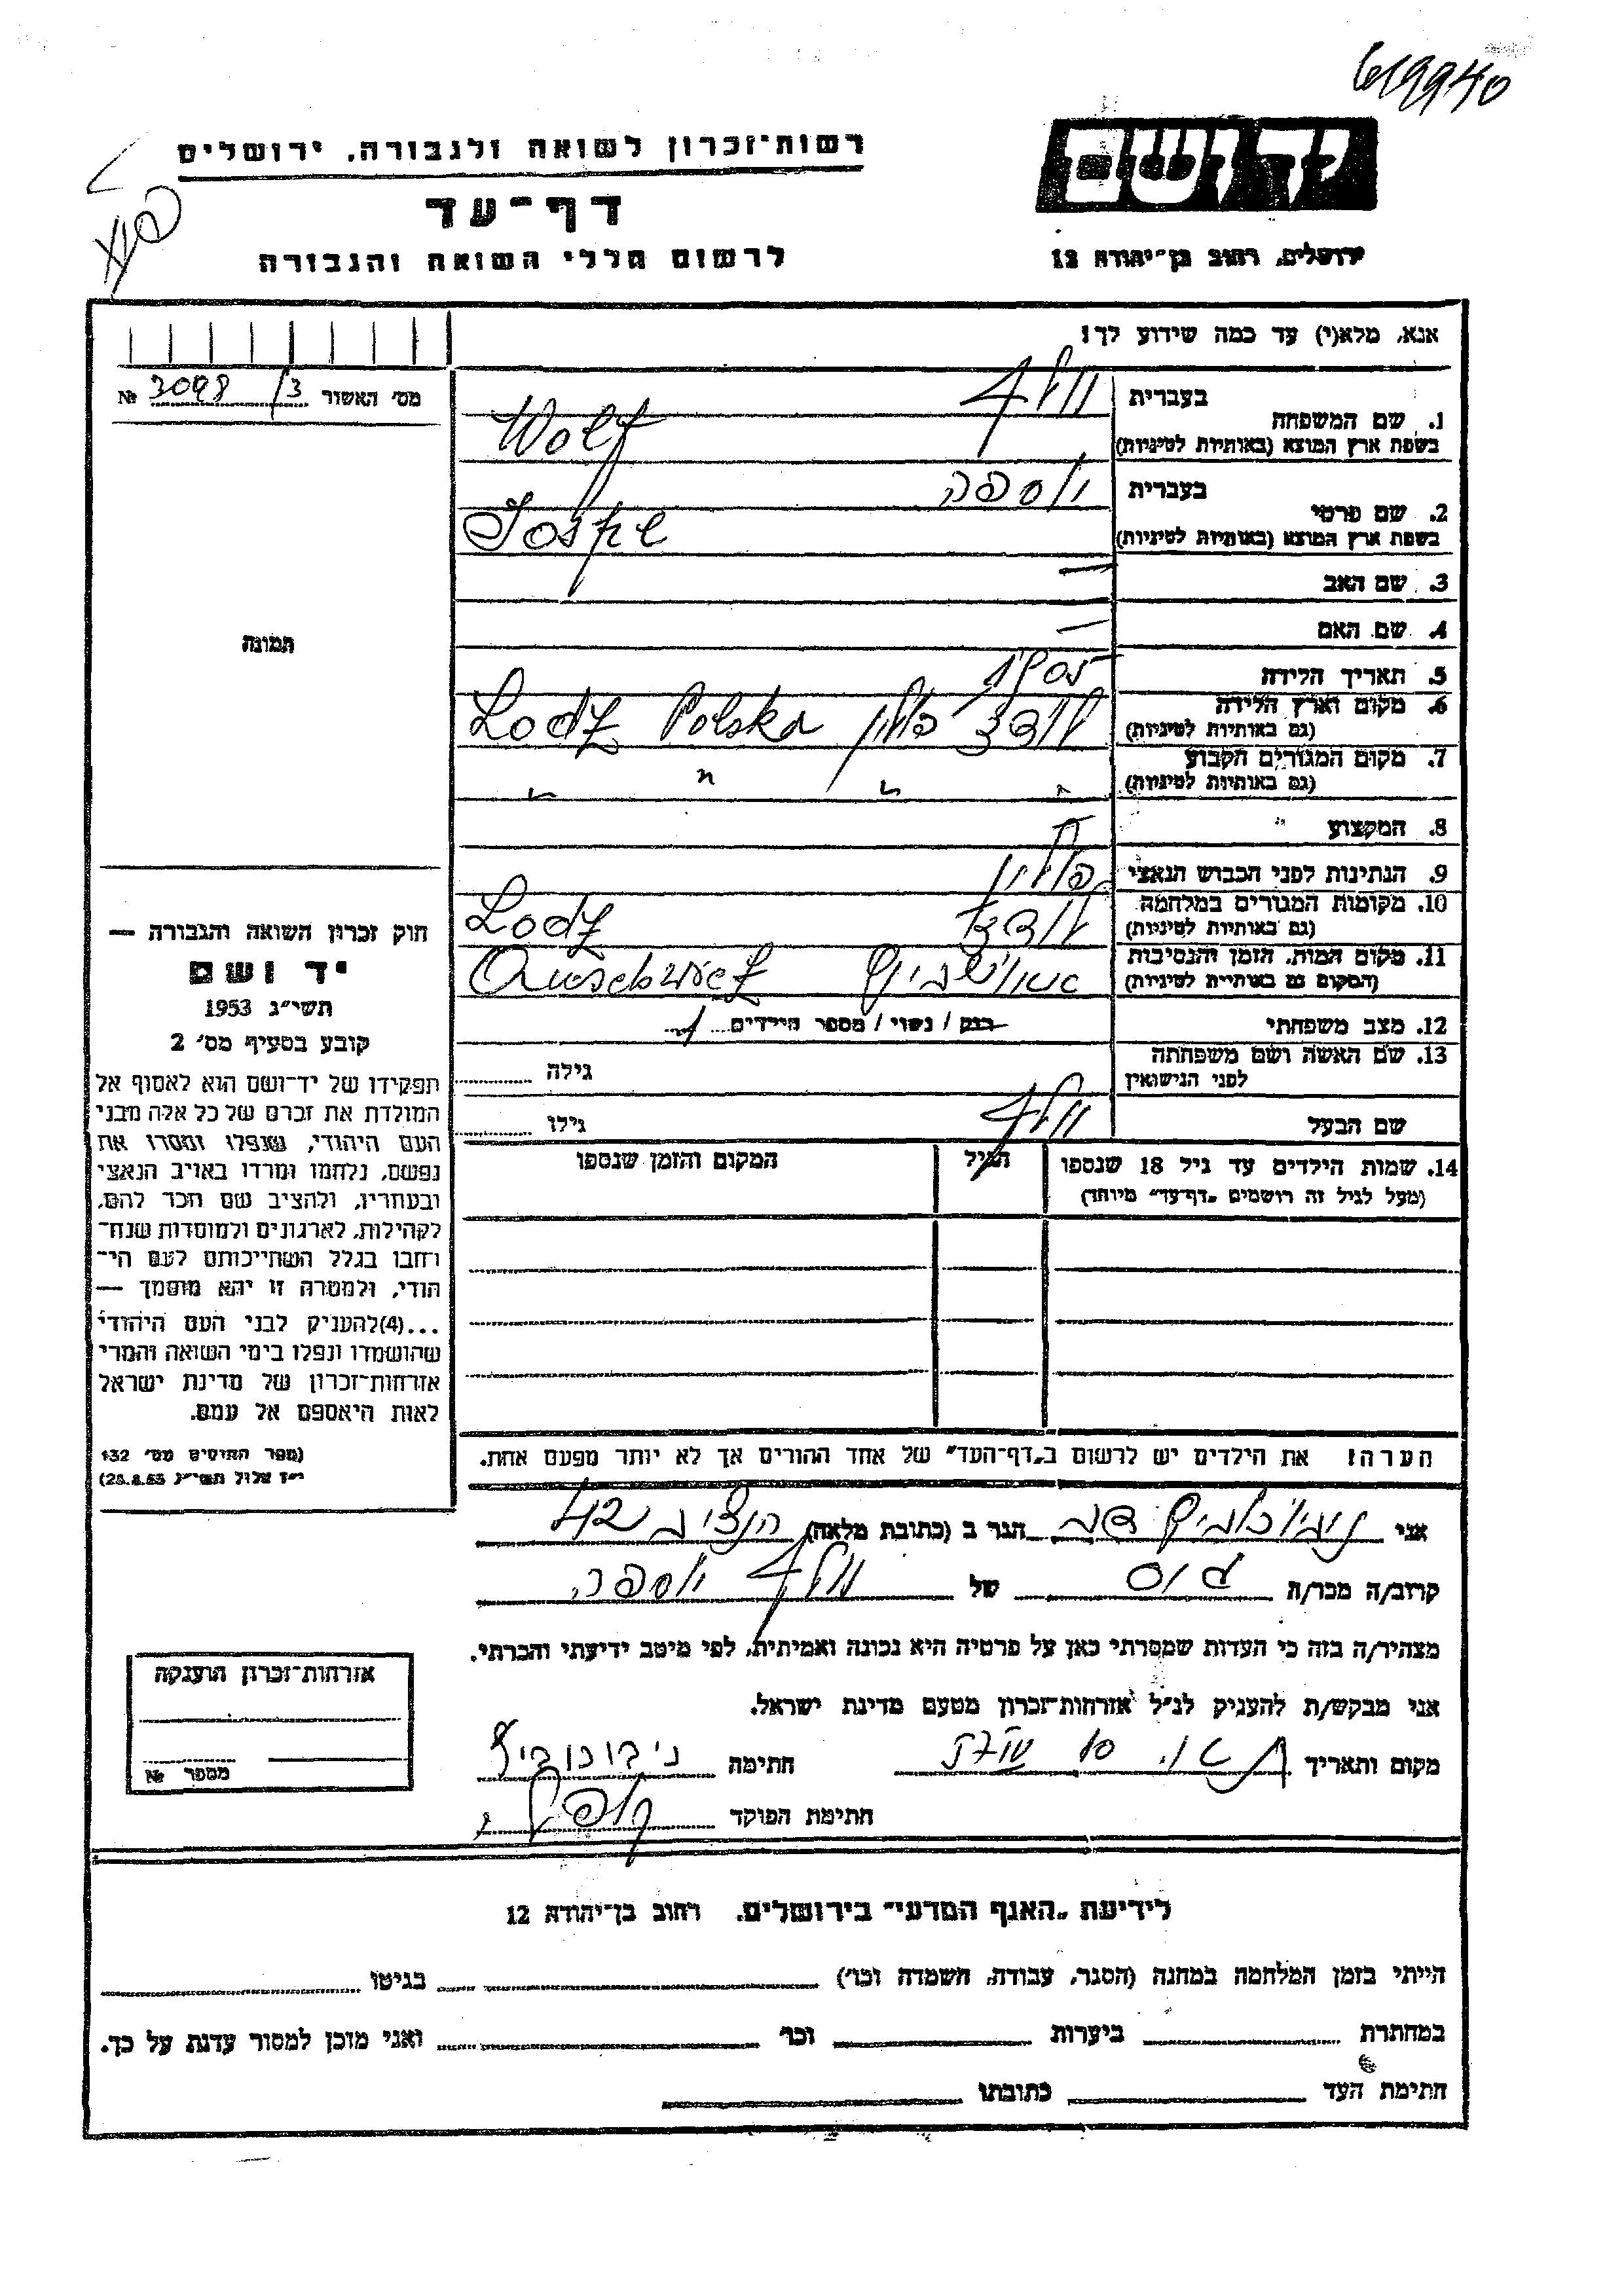 619940
יד ושם
רשות־זכרון לשואה ולגבורה, ירושלים
דף־עד
ירושלים, רחוב בן־יהודה 12
לרשום חללי השואה והגבורה
אנא, מלא(י) עד כמה שידוע לך!
מס' האשור 3098/3 №
תמונה
בעברית וולף
1. שם המשפחה
בשפת ארץ המוצא (באותיות לטיניות) Wolf
בעברית יוספה
2. שם פרטי
בשפת ארץ המוצא (באותיות לטיניות) Jospe
3. שם האב —
4. שם האם —
5. תאריך הלידה 1905
6. מקום וארץ הלידה לודז פולין Lodz Polska
(גם באותיות לטיניות)
7. מקום המגורים הקבוע " " " "
(גם באותיות לטיניות)
8. המקצוע
9. הנתינות לפני הכבוש הנאצי פולין
10. מקומות המגורים במלחמה לודז Lodz
(גם באותיות לטיניות)
11. מקום המות, הזמן והנסיבות אושביץ Auschwietz
(המקום גם באותיות לטיניות)
12. מצב משפחתי רווק / נשוי / מספר הילדים
13. שם האשה ושם משפחתה גילה
לפני הנישואין
שם הבעל וולף גילו
14. שמות הילדים עד גיל 18 שנספו הגיל המקום והזמן שנספו
(מעל לגיל זה רושמים „דף־עד" מיוחד)
הערה! את הילדים יש לרשום ב„דף־העד" של אחד ההורים אך לא יותר מפעם אחת.
חוק זכרון השואה והגבורה —
יד ושם
תשי״ג 1953
קובע בסעיף מס' 2
תפקידו של יד־ושם הוא לאסוף אל
המולדת את זכרם של כל אלה מבני
העם היהודי, שנפלו ומסרו את
נפשם, נלחמו ומרדו באויב הנאצי
ובעוזריו, ולהציב שם וזכר להם,
לקהילות, לארגונים ולמוסדות שנח־
רבו בגלל השתייכותם לעם הי־
הודי, ולמטרה זו יהא מוסמך —
...(4)להעניק לבני העם היהודי
שהושמדו ונפלו בימי השואה והמרי
אזרחות־זכרון של מדינת ישראל
לאות היאספם אל עמם.
(ספר החוקים מס' 132
י״ז אלול תשי״ג 28.8.53)
אני הגר ב (כתובת מלאה) הנציב 42
קרוב/ה מכר/ה גיס של וולף יוספה
מצהיר/ה בזה כי העדות שמסרתי כאן על פרטיה היא נכונה ואמיתית, לפי מיטב ידיעתי והכרתי.
אני מבקש/ת להעניק לנ״ל אזרחות־זכרון מטעם מדינת ישראל.
מקום ותאריך חתימה
חתימת הפוקד
אזרחות־זכרון הוענקה
מספר №
לידיעת „האגף המדעי" בירושלים, רחוב בן־יהודה 12
הייתי בזמן המלחמה במחנה (הסגר, עבודה, השמדה וכו') בגיטו
במחתרת ביערות וכו' ואני מוכן למסור עדות על כך.
חתימת העד כתובתו